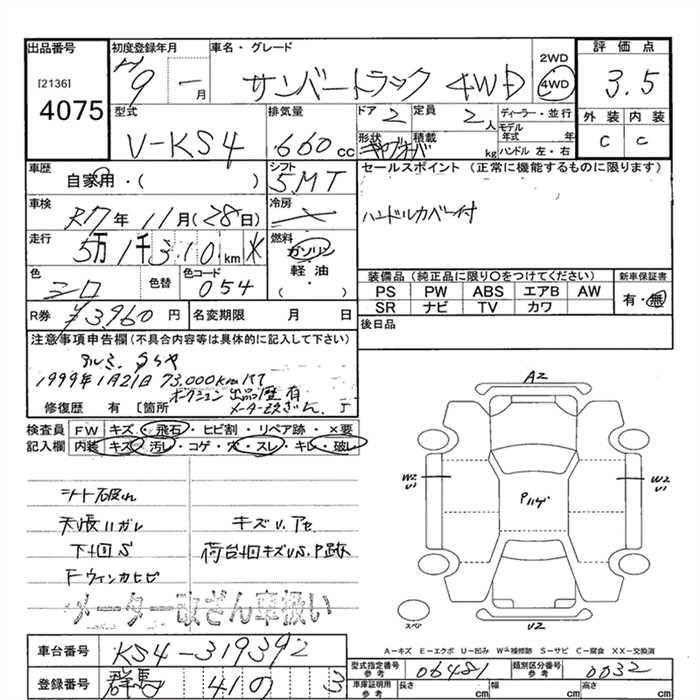 出品番号
[2136]
4075
初度登録年月
H9 - 月
車名・グレード
サンバートラック 4WD
2WD
4WD
評価点
3.5
外装 内装
C C
型式
V-KS4
排気量
660cc
ドア 2
定員 2人
ディーラー・並行
モデル年式 年
形状
積載 kg
ハンドル 左・右
車歴
自家用・( )
シフト
5MT
セールスポイント (正常に機能するものに限ります)
ハンドルカバー付
車検
R7年11月(28日)
冷房
走行
5万1千310km
燃料
ガソリン
軽油
( ・ )
色
シロ
色替
色コード
054
装備品(純正品に限り〇をつけてください)
PS PW ABS エアB AW
SR ナビ TV カワ
新車保証書
有・無
R券
¥3,960円
名変期限 月 日
後日品
注意事項申告欄(不具合内容等は具体的に記入して下さい)
1999年1月21日 73,000km
オークション出品歴有
メーター改ざん
修復歴 有 [箇所
検査員記入欄
FW キズ・飛石・ヒビ割・リペア跡・×要
内装 キズ・汚レ・コゲ・穴・スレ・キレ・破レ
シート破れ
天張ハガレ
キズU.アセ
下廻S
荷台廻キズU.S.P跡
Fウィンカヒビ
メーター改ざん車扱い
A2
W2
U1
Pハゲ
W2
U1
スペア
U2
A-キズ E-エクボ U-凹み W-補修跡 S-サビ C-腐食 XX-交換済
車台番号
KS4-319392
登録番号
群馬 41 の 3
型式指定番号
参考
06481
類別区分番号
参考
0032
車庫証明用
参考
長さ cm
幅 cm
高さ cm